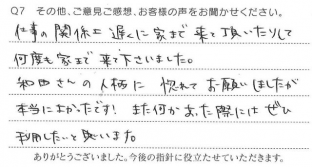 Q7 その他、ご意見ご感想、お客様の声をお聞かせください。
仕事の関係上 遅くに家まで 来て頂いたりして
何度も家まで 来て下さいました。
和田さんの人柄に 惚れてお願いしましたが
本当によかったです! また何かあった際には ぜひ
利用したいと思います。
ありがとうございました。今後の指針に役立たせていただきます。